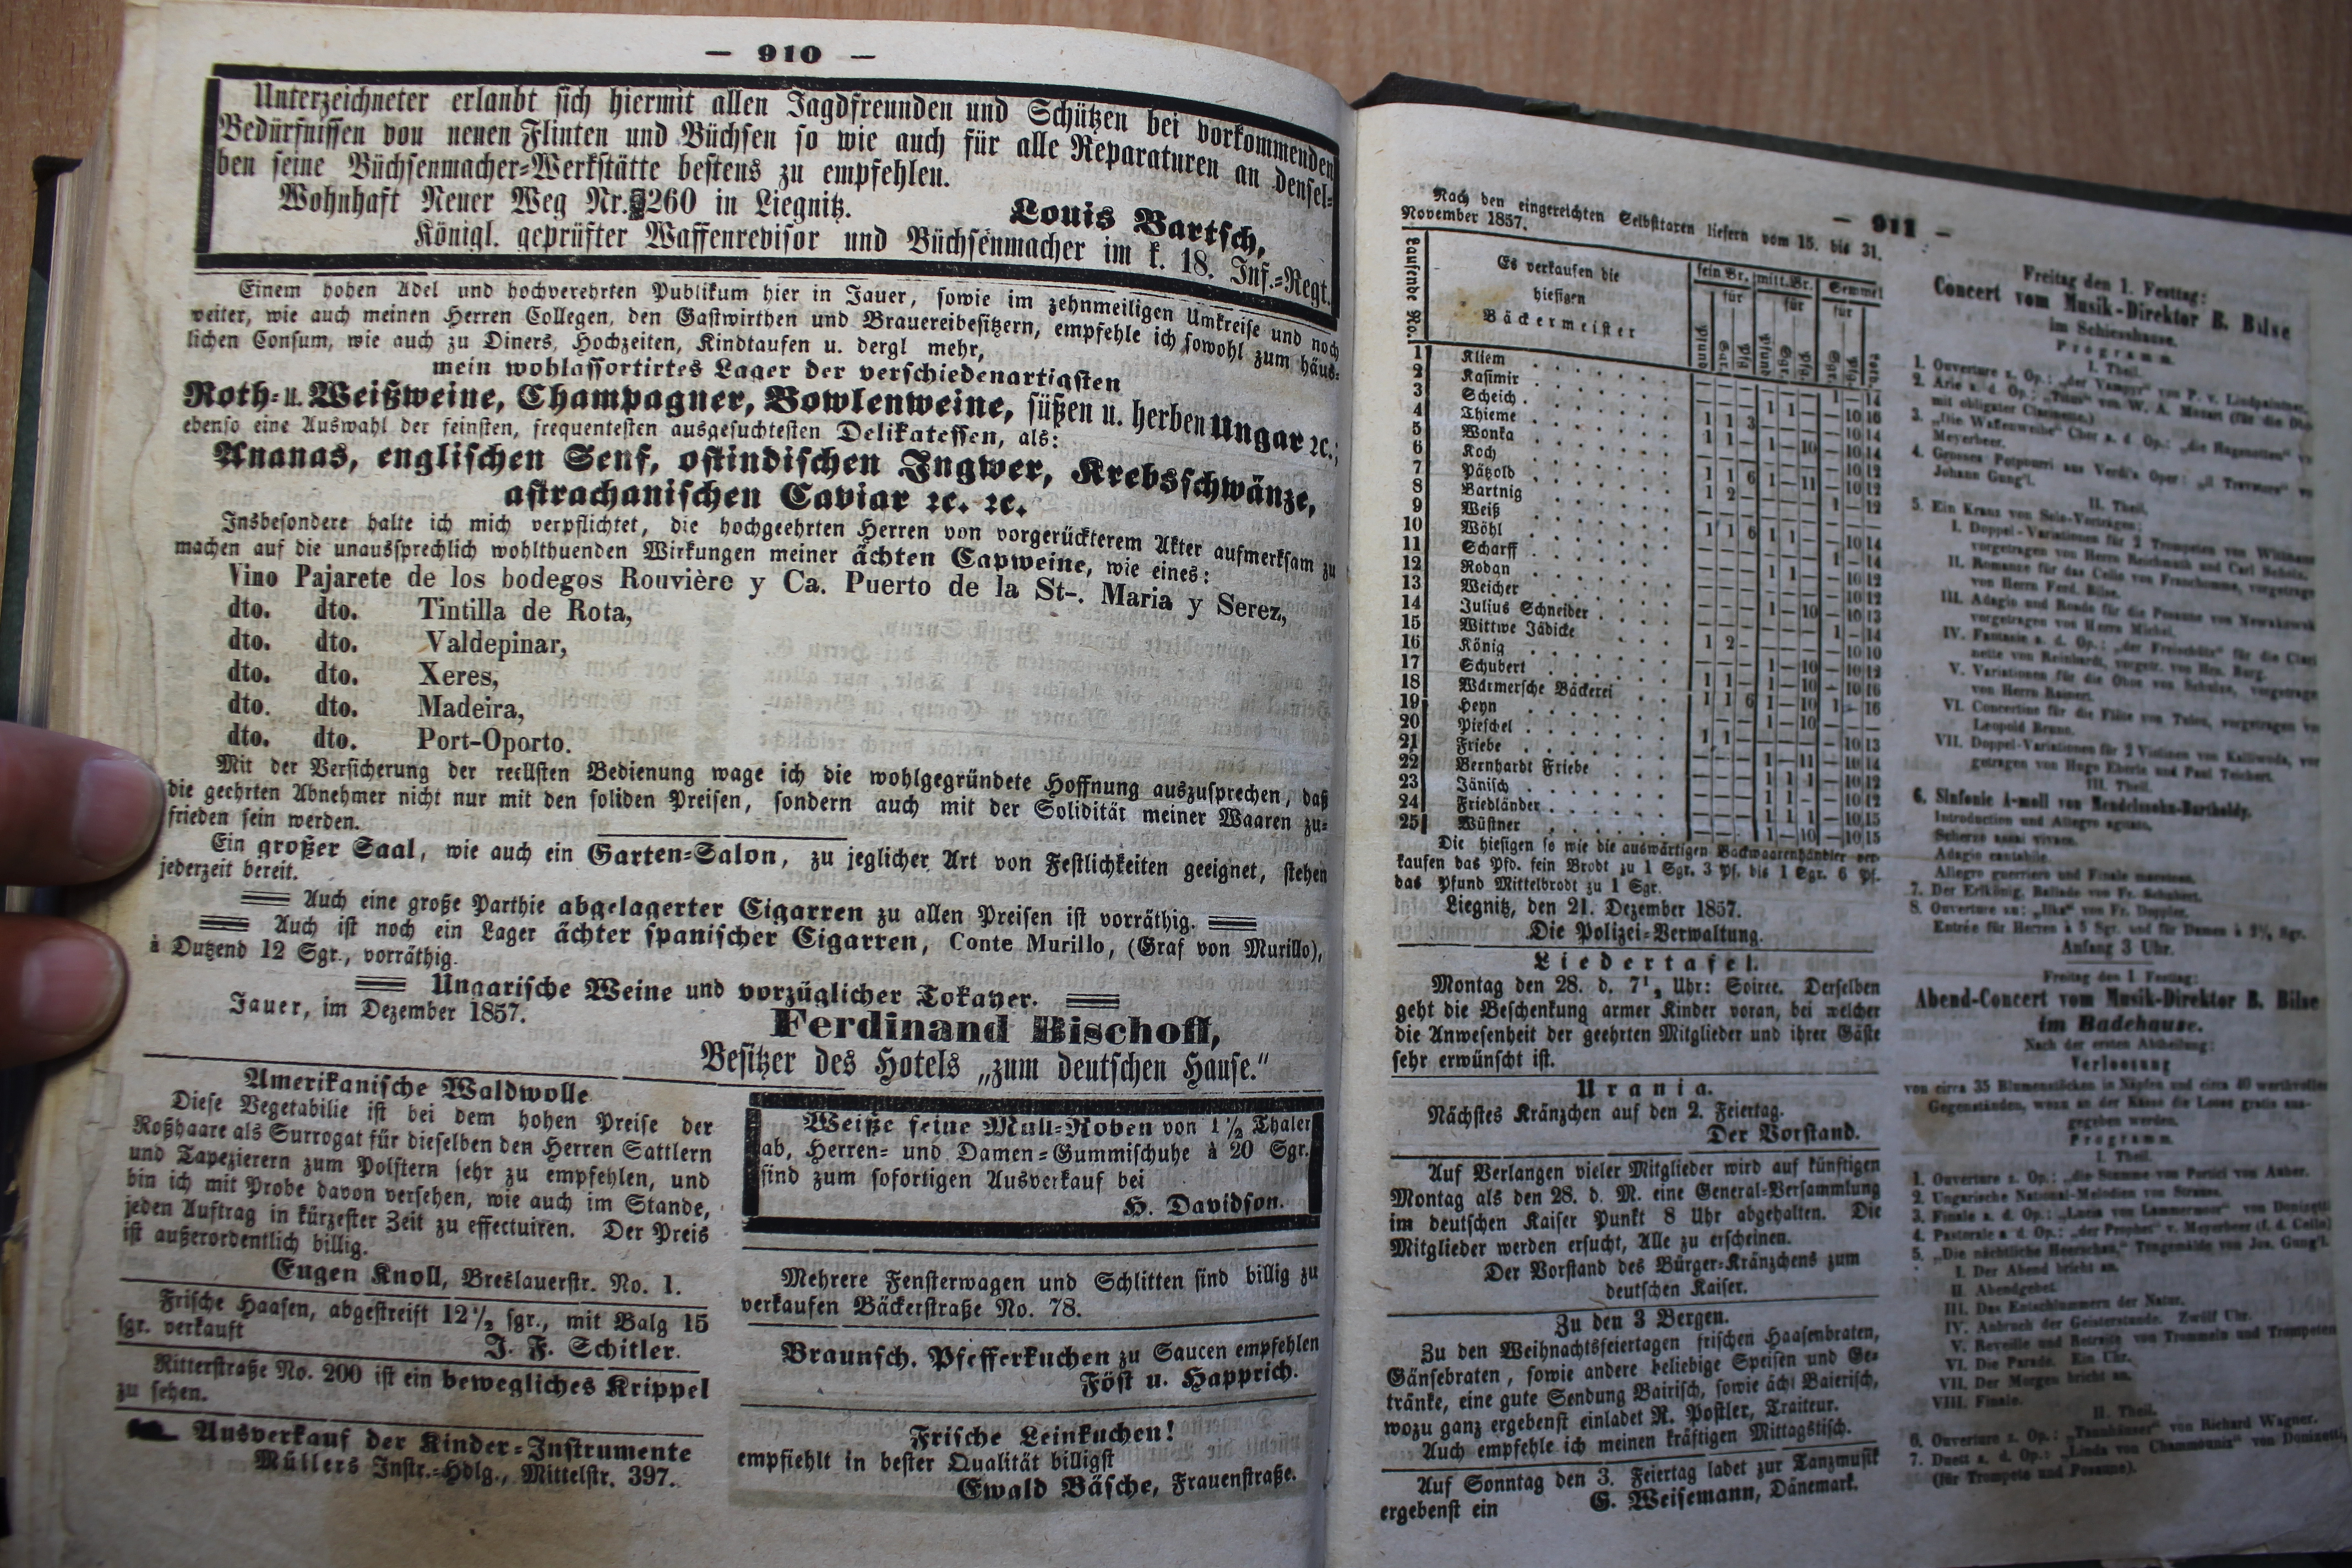 — 910 —
Unterzeichneter erlaubt sich hiermit allen Jagdfreunden und Schützen bei vorkommenden
Bedürfnissen von neuen Flinten und Büchsen so wie auch für alle Reparaturen an densel-
ben seine Büchsenmacher-Werkstätte bestens zu empfehlen.
Wohnhaft Neuer Weg Nr. 260 in Liegnitz.
Louis Bartsch,
Königl. geprüfter Waffenrevisor und Büchsenmacher im k. 18. Inf.-Regt.
Einem hohen Adel und hochverehrten Publikum hier in Jauer, sowie im zehnmeiligen Umkreise und noch
weiter, wie auch meinen Herren Collegen, den Gastwirthen und Brauereibesitzern, empfehle ich sowohl zum häus-
lichen Consum, wie auch zu Diners, Hochzeiten, Kindtaufen u. dergl mehr,
mein wohlassortirtes Lager der verschiedenartigsten
Roth- u. Weißweine, Champagner, Bowlenweine, süßen u. herben Ungar ꝛc.;
ebenso eine Auswahl der feinsten, frequentesten ausgesuchtesten Delikatessen, als:
Ananas, englischen Senf, ostindischen Ingwer, Krebsschwänze,
astrachanischen Caviar ꝛc. ꝛc.
Insbesondere halte ich mich verpflichtet, die hochgeehrten Herren von vorgerückterem Alter aufmerksam zu
machen auf die unaussprechlich wohlthuenden Wirkungen meiner ächten Capweine, wie eines:
Vino Pajarete de los bodegos Rouvière y Ca. Puerto de la St-. Maria y Serez,
dto. dto. Tintilla de Rota,
dto. dto. Valdepinar,
dto. dto. Xeres,
dto. dto. Madeira,
dto. dto. Port-Oporto.
Mit der Versicherung der reellsten Bedienung wage ich die wohlgegründete Hoffnung auszusprechen, daß
die geehrten Abnehmer nicht nur mit den soliden Preisen, sondern auch mit der Solidität meiner Waaren zu-
frieden sein werden.
Ein großer Saal, wie auch ein Garten-Salon, zu jeglicher Art von Festlichkeiten geeignet, stehen
jederzeit bereit.
Auch eine große Parthie abgelagerter Cigarren zu allen Preisen ist vorräthig.
Auch ist noch ein Lager ächter spanischer Cigarren, Conte Murillo, (Graf von Murillo),
à Dutzend 12 Sgr., vorräthig.
Ungarische Weine und vorzüglicher Tokayer.
Jauer, im Dezember 1857.
Ferdinand Bischoff,
Besitzer des Hotels „zum deutschen Hause."
Amerikanische Waldwolle
Diese Vegetabilie ist bei dem hohen Preise der
Roßhaare als Surrogat für dieselben den Herren Sattlern
und Tapezierern zum Polstern sehr zu empfehlen, und
bin ich mit Probe davon versehen, wie auch im Stande,
jeden Auftrag in kürzester Zeit zu effectuiren. Der Preis
ist außerordentlich billig.
Eugen Knoll, Breslauerstr. No. 1.
Frische Haasen, abgestreift 12½ sgr., mit Balg 15
sgr. verkauft
J. F. Schitler.
Ritterstraße No. 200 ist ein bewegliches Krippel
zu sehen.
Ausverkauf der Kinder-Instrumente
Müllers Instr.-Hdlg., Mittelstr. 397.
Weiße feine Mull-Roben von 1½ Thaler
ab, Herren- und Damen-Gummischuhe à 20 Sgr.
sind zum sofortigen Ausverkauf bei
H. Davidson.
Mehrere Fensterwagen und Schlitten sind billig zu
verkaufen Bäckerstraße No. 78.
Braunsch. Pfefferkuchen zu Saucen empfehlen
Föst u. Happrich.
Frische Leinkuchen!
empfiehlt in bester Qualität billigst
Ewald Bäsche, Frauenstraße.
— 911 —
Nach den eingereichten Selbsttaxen liefern vom 15. bis 31.
November 1857.
Laufende No.
Es verkaufen die
hiesigen
Bäckermeister
fein Br. mitt. Br. Semmel
für für für
1 Kliem
2 Kasimir
3 Scheich
4 Thieme
5 Wonka
6 Koch
7 Pätzold
8 Bartnig
9 Weiß
10 Wöhl
11 Scharff
12 Rodan
13 Weicher
14 Julius Schneider
15 Wittwe Jädicke
16 König
17 Schubert
18 Wärmersche Bäckerei
19 Heyn
20 Pieschel
21 Friebe
22 Bernhardt Friebe
23 Jänisch
24 Friedländer
25 Wüstner
Die hiesigen so wie die auswärtigen Backwaarenhändler ver-
kaufen das Pfd. fein Brodt zu 1 Sgr. 3 Pf. bis 1 Sgr. 6 Pf.
das Pfund Mittelbrodt zu 1 Sgr.
Liegnitz, den 21. Dezember 1857.
Die Polizei-Verwaltung.
Liedertafel.
Montag den 28. d. 7½ Uhr: Soiree. Derselben
geht die Beschenkung armer Kinder voran, bei welcher
die Anwesenheit der geehrten Mitglieder und ihrer Gäste
sehr erwünscht ist.
Urania.
Nächstes Kränzchen auf den 2. Feiertag.
Der Vorstand.
Auf Verlangen vieler Mitglieder wird auf künftigen
Montag als den 28. d. M. eine General-Versammlung
im deutschen Kaiser Punkt 8 Uhr abgehalten. Die
Mitglieder werden ersucht, Alle zu erscheinen.
Der Vorstand des Bürger-Kränzchens zum
deutschen Kaiser.
Zu den 3 Bergen.
Zu den Weihnachtsfeiertagen frischen Haasenbraten,
Gänsebraten, sowie andere beliebige Speisen und Ge-
tränke, eine gute Sendung Bairisch, sowie ächt Baierisch,
wozu ganz ergebenst einladet R. Postler, Traiteur.
Auch empfehle ich meinen kräftigen Mittagstisch.
Auf Sonntag den 3. Feiertag ladet zur Tanzmusik
ergebenst ein G. Weisemann, Dänemark.
Freitag den 1. Festtag:
Concert vom Musik-Direktor B. Bilse
im Schiesshause.
Programm.
I. Theil.
1. Ouverture z. Op.: „der Vampyr" von P. v. Lindpaintner.
2. Arie a. d. Op.: „Titus" von W. A. Mozart (für die
mit obligater Clarinette.)
3. „Die Waffenweihe" Chor a. d. Op.: „die Hugenotten"
Meyerbeer.
4. Grosses Potpourri aus Verdi's Oper:
Johann Gung'l.
II. Theil.
5. Ein Kranz von Solo-Vorträgen:
I. Doppel-Variationen für 2 Trompeten von
vorgetragen von Herrn Reichmuth und Carl
II. Romanze für das Cello von Franchomme, vorgetragen
von Herrn Ferd. Bilse.
III. Adagio und Rondo für die Posaune von Nowakowsk
vorgetragen von Herrn Michel.
IV. Fantasie a. d. Op.: „der Freischütz" für die Clari
nette von Reinhardt, vorgetr. von Hrn. Burg.
V. Variationen für die Oboe von
von Herrn
VI. Concertino für die Flöte von Tulou, vorgetragen
Leopold
VII. Doppel-Variationen für 2 Violinen von Kalliwoda, vor
getragen von Hugo Eberle und Paul Teichert.
III. Theil.
6. Sinfonie A-moll von Mendelssohn-Bartholdy.
Introduction und Allegro agitato.
Scherzo assai vivace.
Adagio cantabile.
Allegro guerriero und Finale maestoso.
7. Der Erlkönig, Ballade von Fr. Schubert.
8. Ouverture zu: „Ilka" von Fr. Doppler.
Entrée für Herren à 5 Sgr. und für Damen à 2½ Sgr.
Anfang 3 Uhr.
Freitag den 1 Festtag:
Abend-Concert vom Musik-Direktor B. Bilse
im Badehause.
Nach der ersten Abtheilung:
Verloosung
von circa 35 Blumenstöcken in Näpfen und circa 40 werthvollen
Gegenständen, wozu an der Kasse die Loose gratis aus-
gegeben werden.
Programm.
I. Theil.
1. Ouverture z. Op.: „die Stumme von Portici von Auber.
2. Ungarische National-Melodien von Strauss.
3. Finale a. d. Op.: „Lucia von Lammermoor" von Donizetti
4. Pastorale a d. Op.: „der Prophet" v. Meyerbeer (f. d. Cello)
5. „Die nächtliche Heerschau," Tongemälde von Jos. Gung'l.
I. Der Abend bricht an.
II. Abendgebet.
III. Das Entschlummern der Natur.
IV. Anbruch der Geisterstunde. Zwölf Uhr.
V. Reveille und Retraite von Trommeln und Trompeten
VI. Die Parade. Ein Uhr.
VII. Der Morgen bricht an.
VIII. Finale.
II. Theil.
6. Ouverture z. Op.: „Tannhäuser" von Richard Wagner.
7. Duett a. d. Op.: „Linda von Chammounix" von Donizetti,
(für Trompete und Posaune).